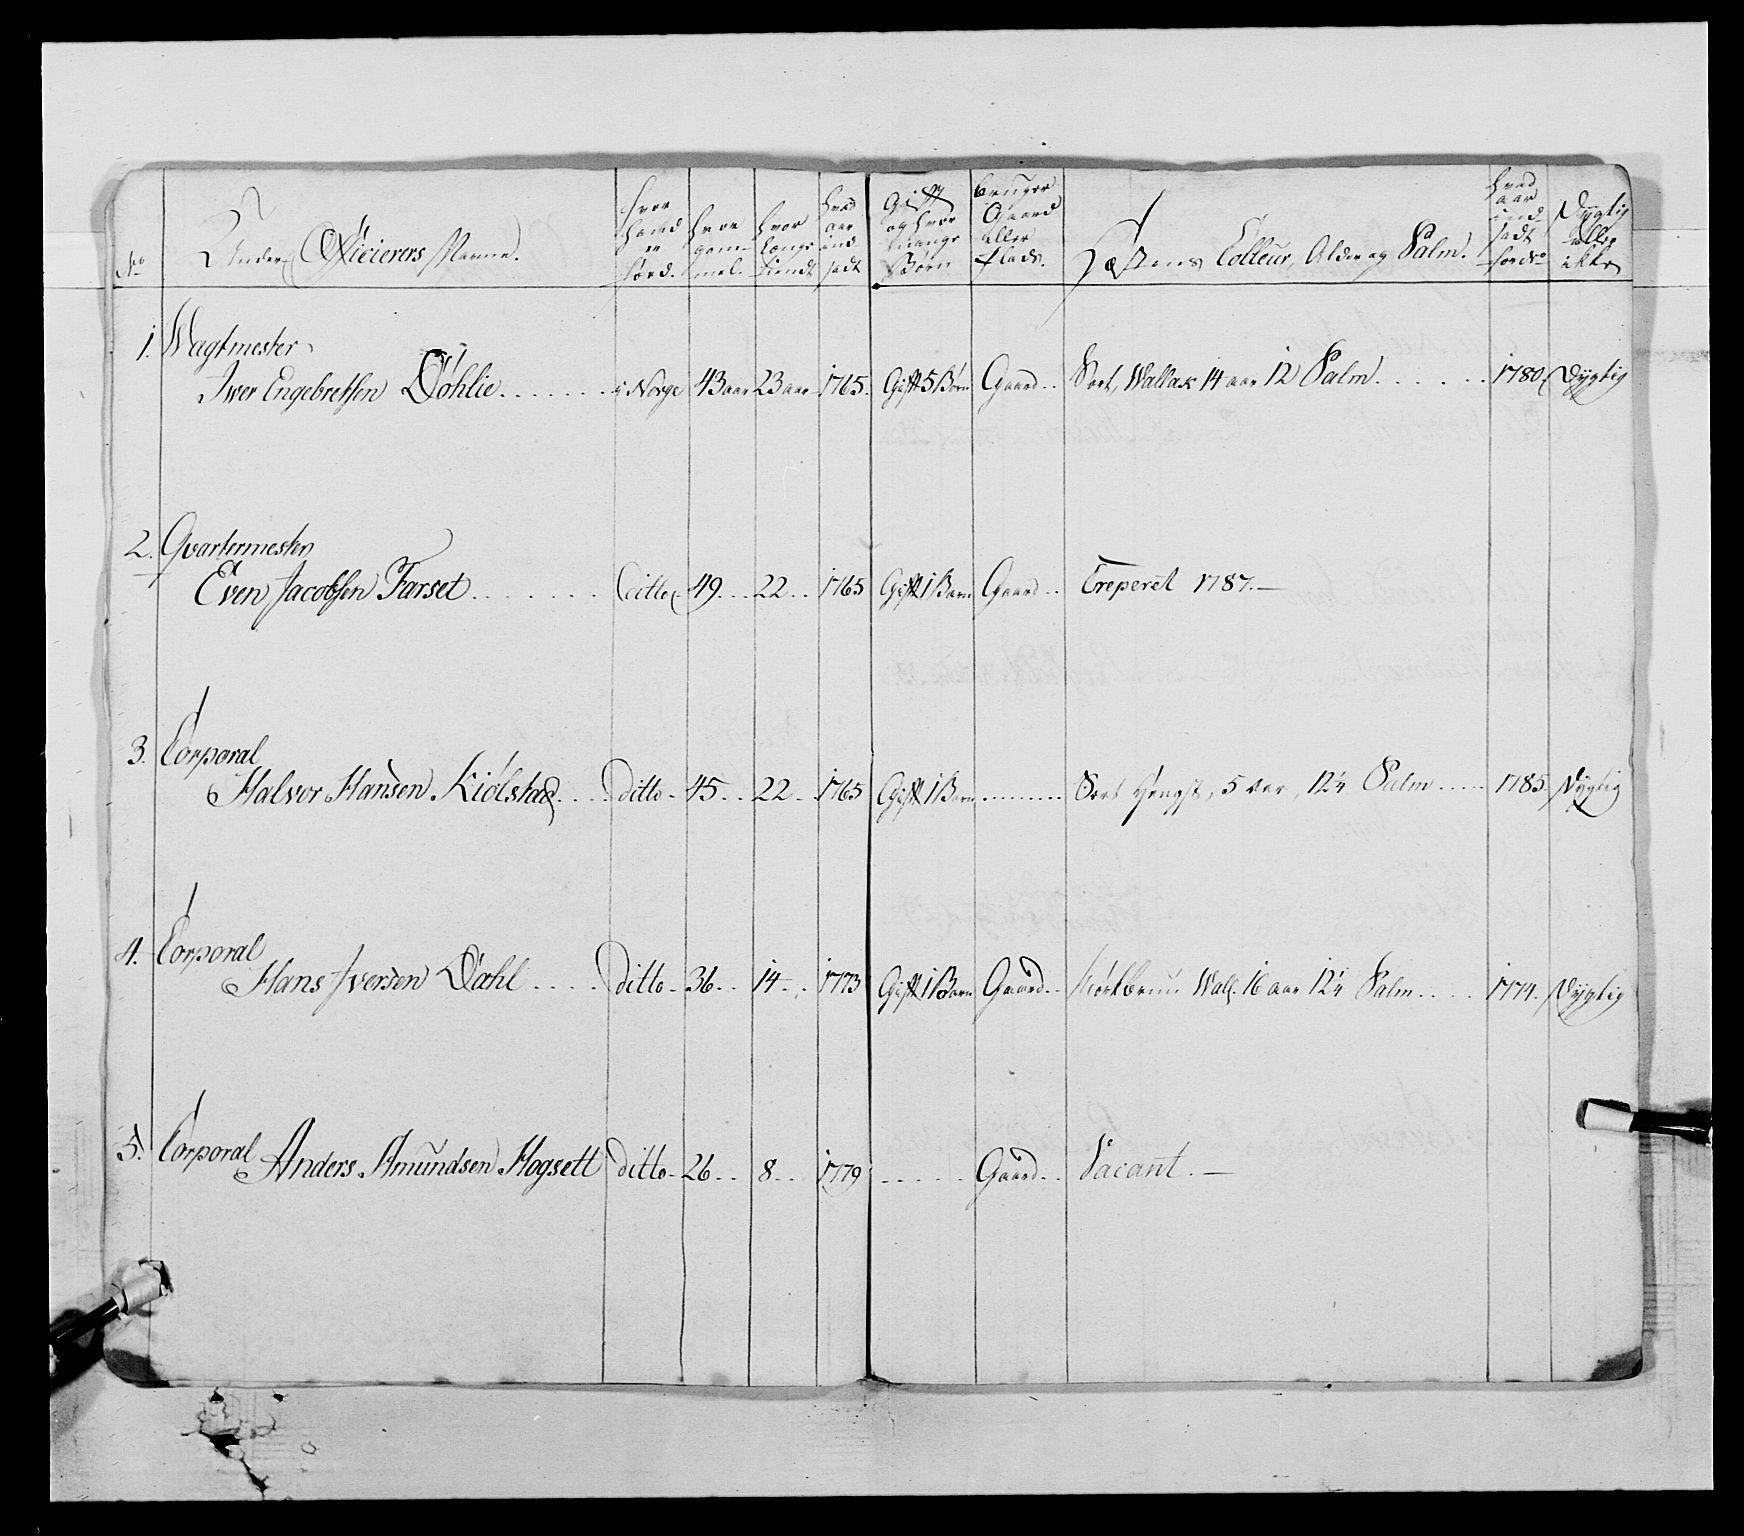 No | Under Officierers Navne. | hvor hand er föed. | hvor gam- mel. | hvor længe tiendt | hvad aar ind sadt | Gift og hvor mange Børn | bruger Gaard eller Plads. | Hæstens Colleur, Alder og Palm. | hvad aar ind sadt | Dygtig eller ikke
1. Wagtmester
Iver Engebretsen Döhlie | i Norge | 43 aar | 23 aar | 1765. | Gift 5 Börn | Gaard | Sort, Wallak 14 aar 12 Palm | 1780 | Dygtig
2. Qvartermester
Even Jacobsen Farset | Ditto | 49 | 22 | 1765 | Gift 1 Barn | Gaard | Creperet 1787.
3. Corporal
Halvor Hansen Kiölstad | Ditto | 45 | 22 | 1765 | Gift 1 Barn | Sort Hingst, 5 aar, 12¼ Palm | 1785. | Dygtig
4. Corporal
Hans Iversen Dahl | Ditto | 36 | 14 | 1773 | Gift 1 Barn | Gaard | Mörkbruun Wall. 16 aar 12¼ Palm | 1774. | Dygtig
5. Corporal Anders Amundsen Hogsett | Ditto | 26 | 8 | 1779 | Gaard | Vacant.